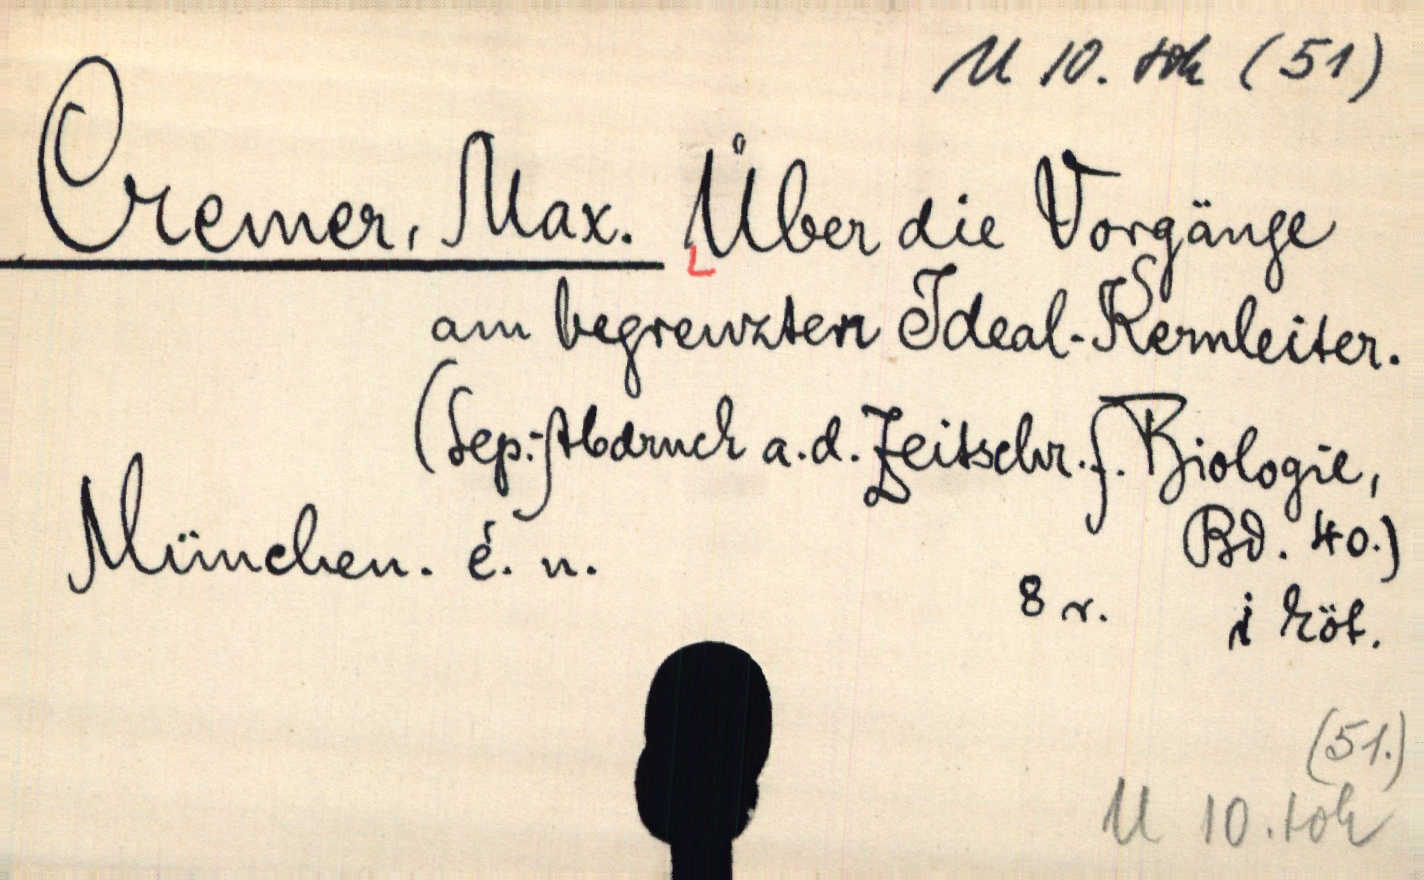 U 10. tok (51)
Cremer, Max. Über die Vorgänge
am begrenzten Ideal-Kernleiter.
(Sep.-Abdruck a. d. Zeitschr. f. Biologie,
Bd. 40.)
München. é. n.
8 r. i köt.
(51.)
U 10. tok